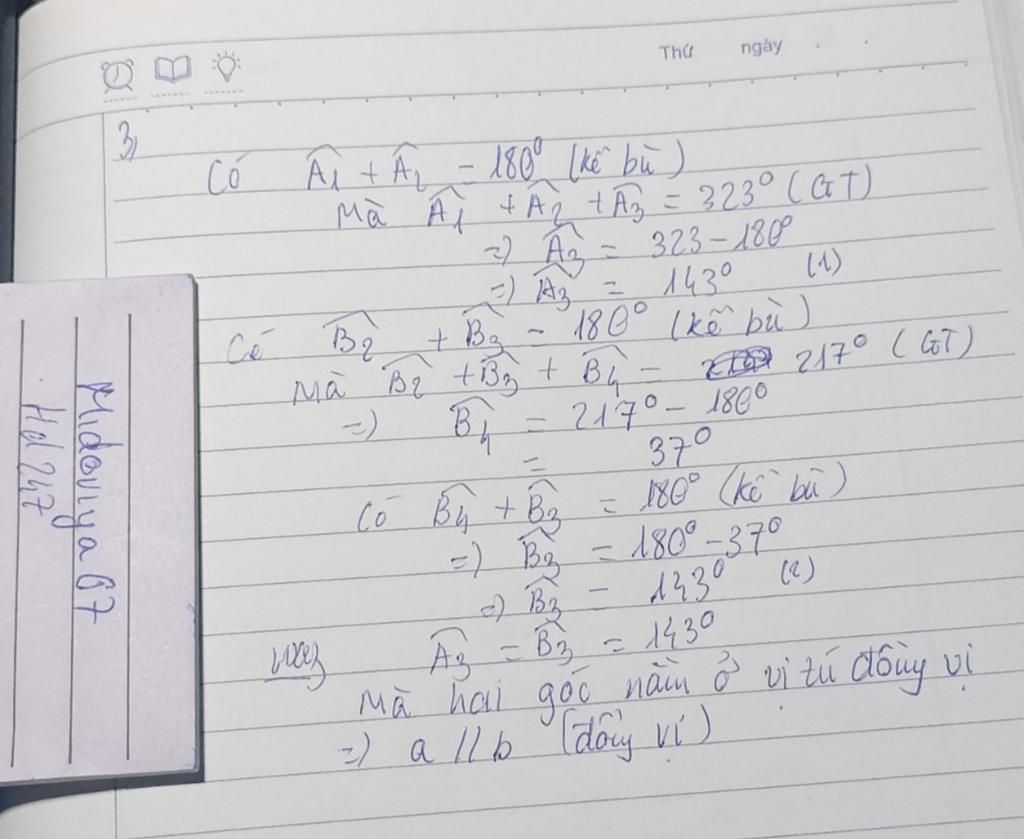 Thứ ngày
3)
Có A1 + A2 = 180° (kề bù)
Mà A1 + A2 + A3 = 323° (GT)
=) A3 = 323 - 180°
=) A3 = 143° (1)
Có B2 + B3 = 180° (kề bù)
Mà B2 + B3 + B4 = 217° (GT)
=) B4 = 217° - 180°
= 37°
Có B4 + B3 = 180° (kề bù)
=) B3 = 180° - 37°
=) B3 = 143° (2)
A3 = B3 = 143°
Mà hai góc nằm ở vị trí đồng vị
=) a // b (đồng vị)
Midoruya67
Hd247